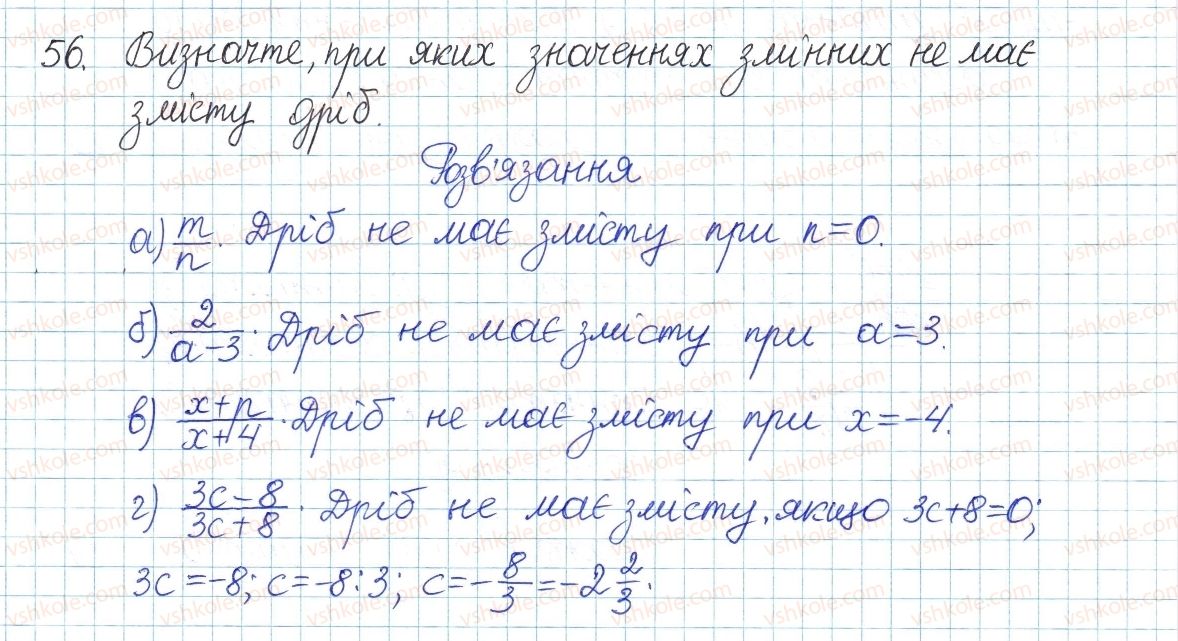 56. Визначте, при яких значеннях змінних не має
змісту дріб.
Розв'язання
а) m/n. Дріб не має змісту при n=0.
б) 2/(a-3). Дріб не має змісту при a=3.
в) (x+n)/(x+4). Дріб не має змісту при x=-4.
г) (3c-8)/(3c+8). Дріб не має змісту, якщо 3c+8=0;
3c=-8; c=-8:3; c=-8/3=-2 2/3.